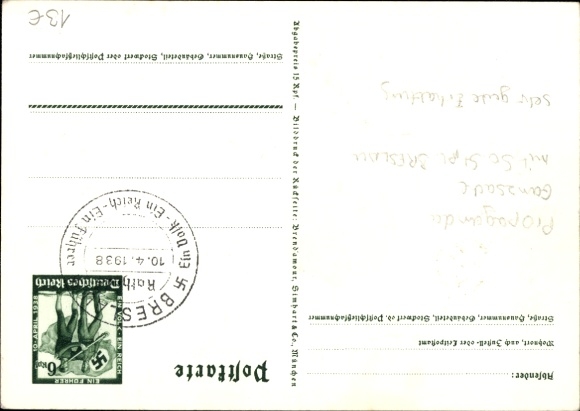 Postkarte
Absender:
Wohnort, auch Zustell- oder Leitpostamt
Straße, Hausnummer, Gebäudeteil, Stockwerk od. Postschließfachnummer
EIN FÜHRER
6
EIN VOLK EIN REICH
10. APRIL 1938
Deutsches Reich
BRESLAU
Rath
10.4.1938
Ein Volk-Ein Reich-Ein Führer
Propaganda
Ganzsache
mit So. Stpl. BRESLAU
sehr gute Erhaltung
Straße, Hausnummer, Gebäudeteil, Stockwerk oder Postschließfachnummer
Abgabepreis 15 Rpf. - Bilddruck der Rückseite: Brendamour, Simhart & Co., München
13€